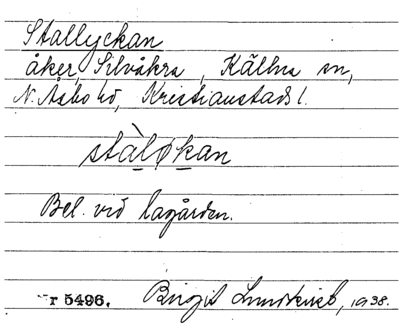 Stallyckan
åker, Silvåkra, Källna sn,
N. Åsbo hd, Kristianstads l.
stàløkan
Bel. vid lagården.
r 5496. Birgit 1938.